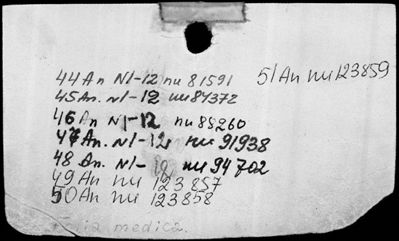 44 An N1-12 nu 81591
51 An nu 123859
45 An. N1-12 nu 84372
46 An N1-12 nu 88260
47 An. N1-12 nu 91938
48 An. N1-12 nu 94702
49 An nu 123857
50 An nu 123858
medica.